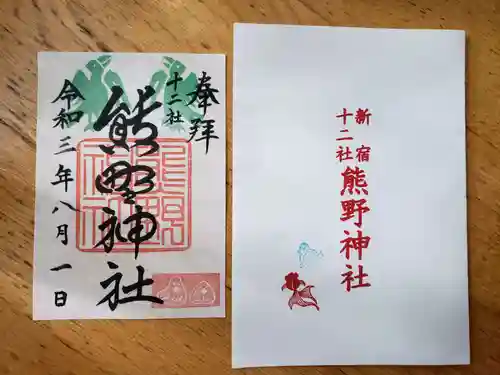 奉拝
十二社
熊野神社
令和三年八月一日
新宿
十二社
熊野神社